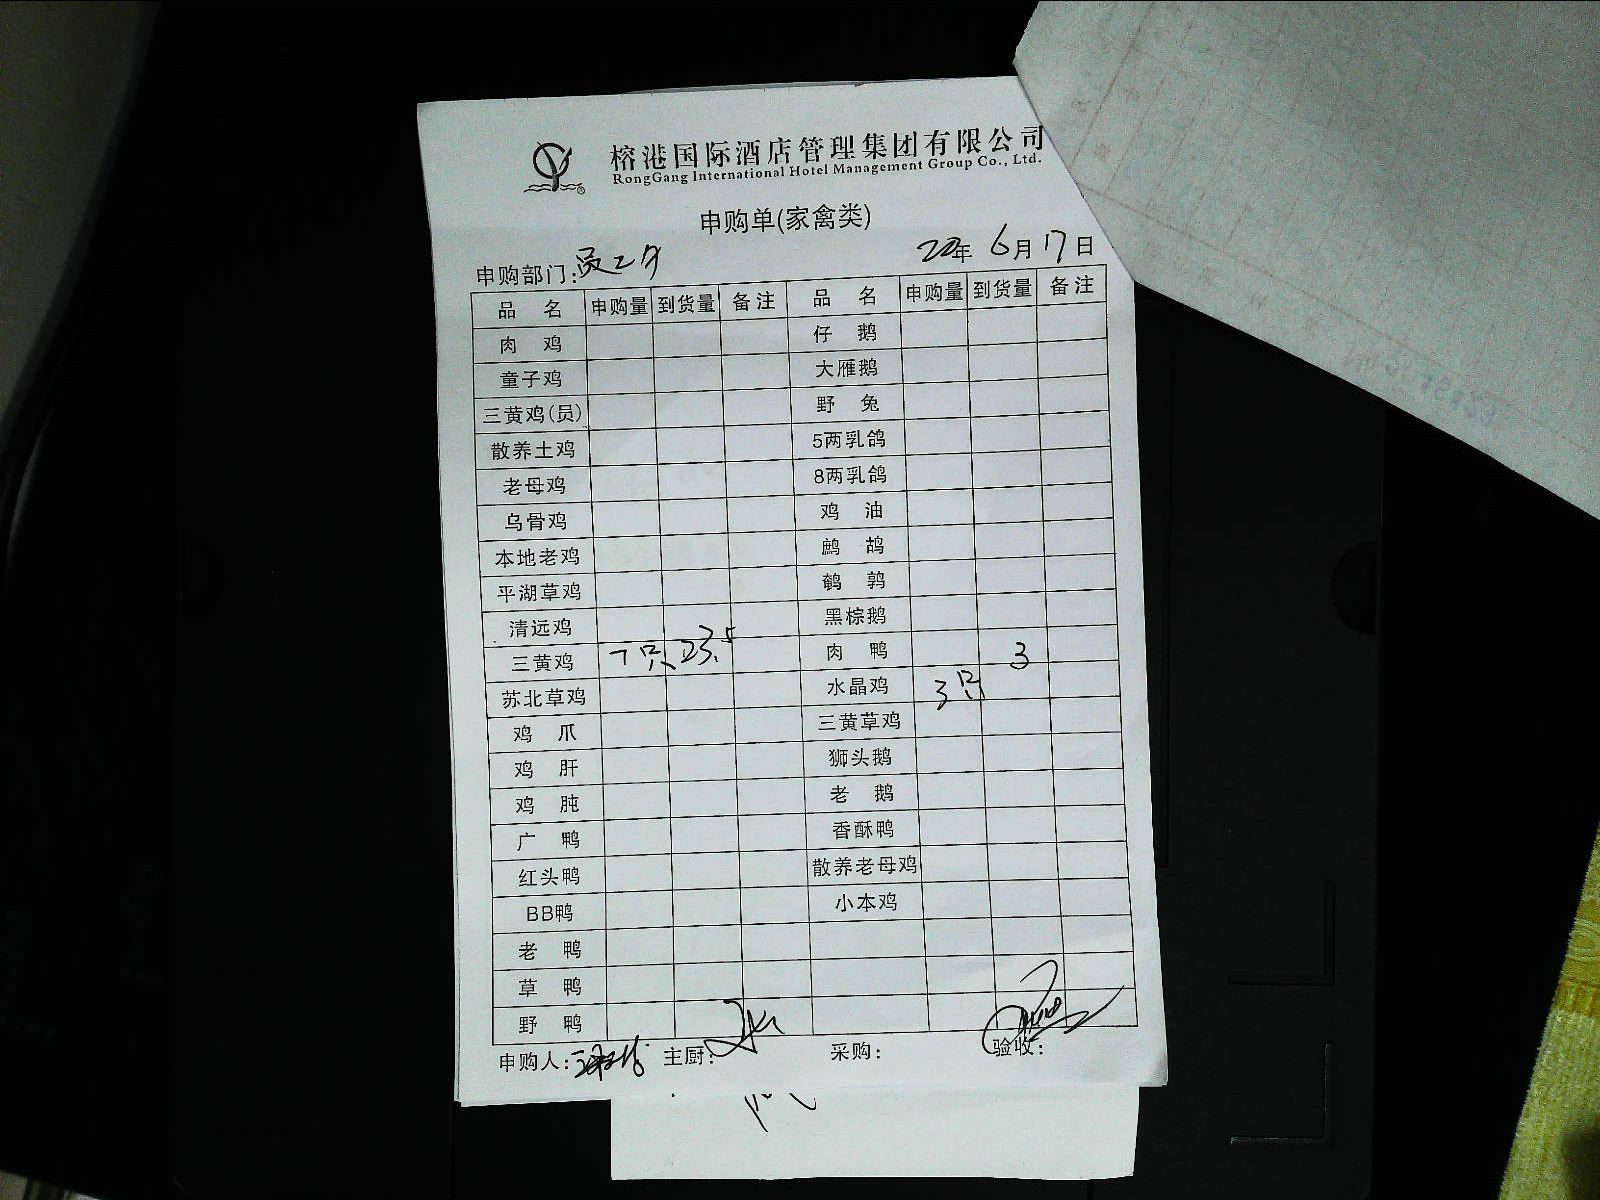 榕港国际酒店管理集团有限公司
RongGang International Hotel Management Group Co., Ltd.
申购单(家禽类)
申购部门: 员工 年 6月17日
品 名 申购量 到货量 备注 品 名 申购量 到货量 备注
肉 鸡 仔 鹅
童子鸡 大雁鹅
三黄鸡(员) 野 兔
散养土鸡 5两乳鸽
老母鸡 8两乳鸽
乌骨鸡 鸡 油
本地老鸡 鹧 鸪
平湖草鸡 鹌 鹑
清远鸡 黑棕鹅
三黄鸡 7只 23.5 肉 鸭 3
苏北草鸡 水晶鸡 3只
鸡 爪 三黄草鸡
鸡 肝 狮头鹅
鸡 肫 老 鹅
广 鸭 香酥鸭
红头鸭 散养老母鸡
BB鸭 小本鸡
老 鸭
草 鸭
野 鸭
申购人: 主厨: 采购: 验收: